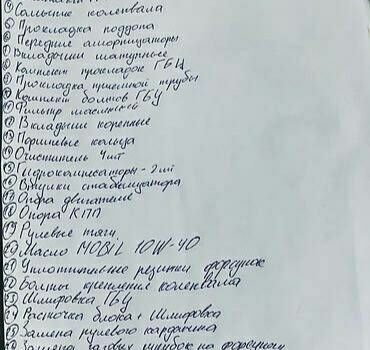 ④ Сальник коленвала
⑤ Прокладка поддона
⑥ Передние амортизаторы
⑦ Вкладыши шатунные
⑧ Комплект прокладок ГБЦ
⑨ Прокладка приемной трубы
⑩ Комплект болтов ГБЦ
⑪ Фильтр масляный
⑫ Вкладыши коренные
⑬ Поршневые кольца
⑭ Очиститель 4шт
⑮ Гидрокомпенсаторы - 2шт
⑯ Втулки стабилизатора
⑰ Опора двигателя
⑱ Опора КПП
⑲ Рулевые тяги
⑳ Масло MOBIL 10W-40
㉑ Уплотнительные резинки форсунок
㉒ Болты крепления коленвала
㉓ Шлифовка ГБЦ
㉔ Расточка блока + шлифовка
Замена рулевого кардана
Замена форсунки